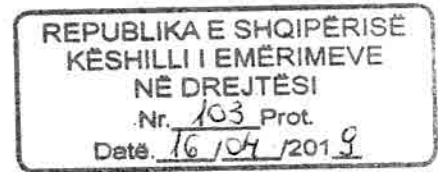 REPUBLIKA E SHQIPËRISË
KËSHILLI I EMËRIMEVE
NË DREJTËSI
Nr. 103 Prot.
Datë. 16 / 04 /2019